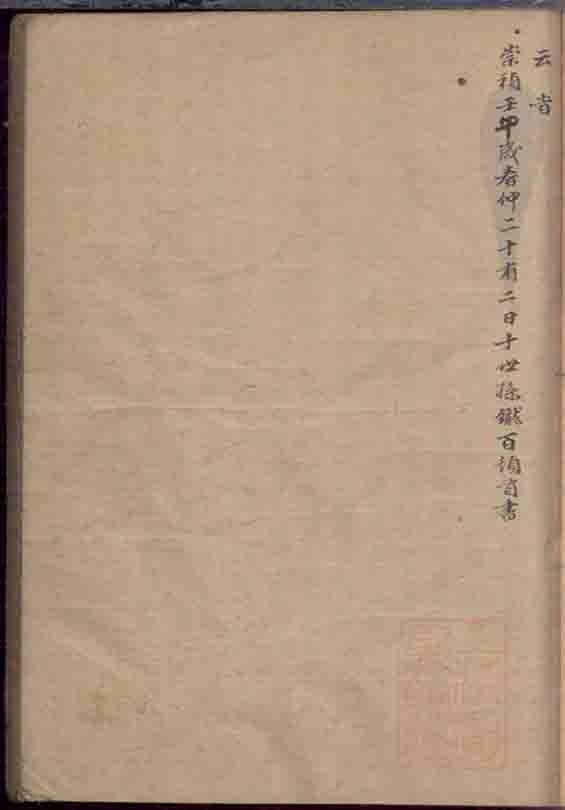 云旹
崇禎壬申歲春仲二十有二日十世孫百頓首書